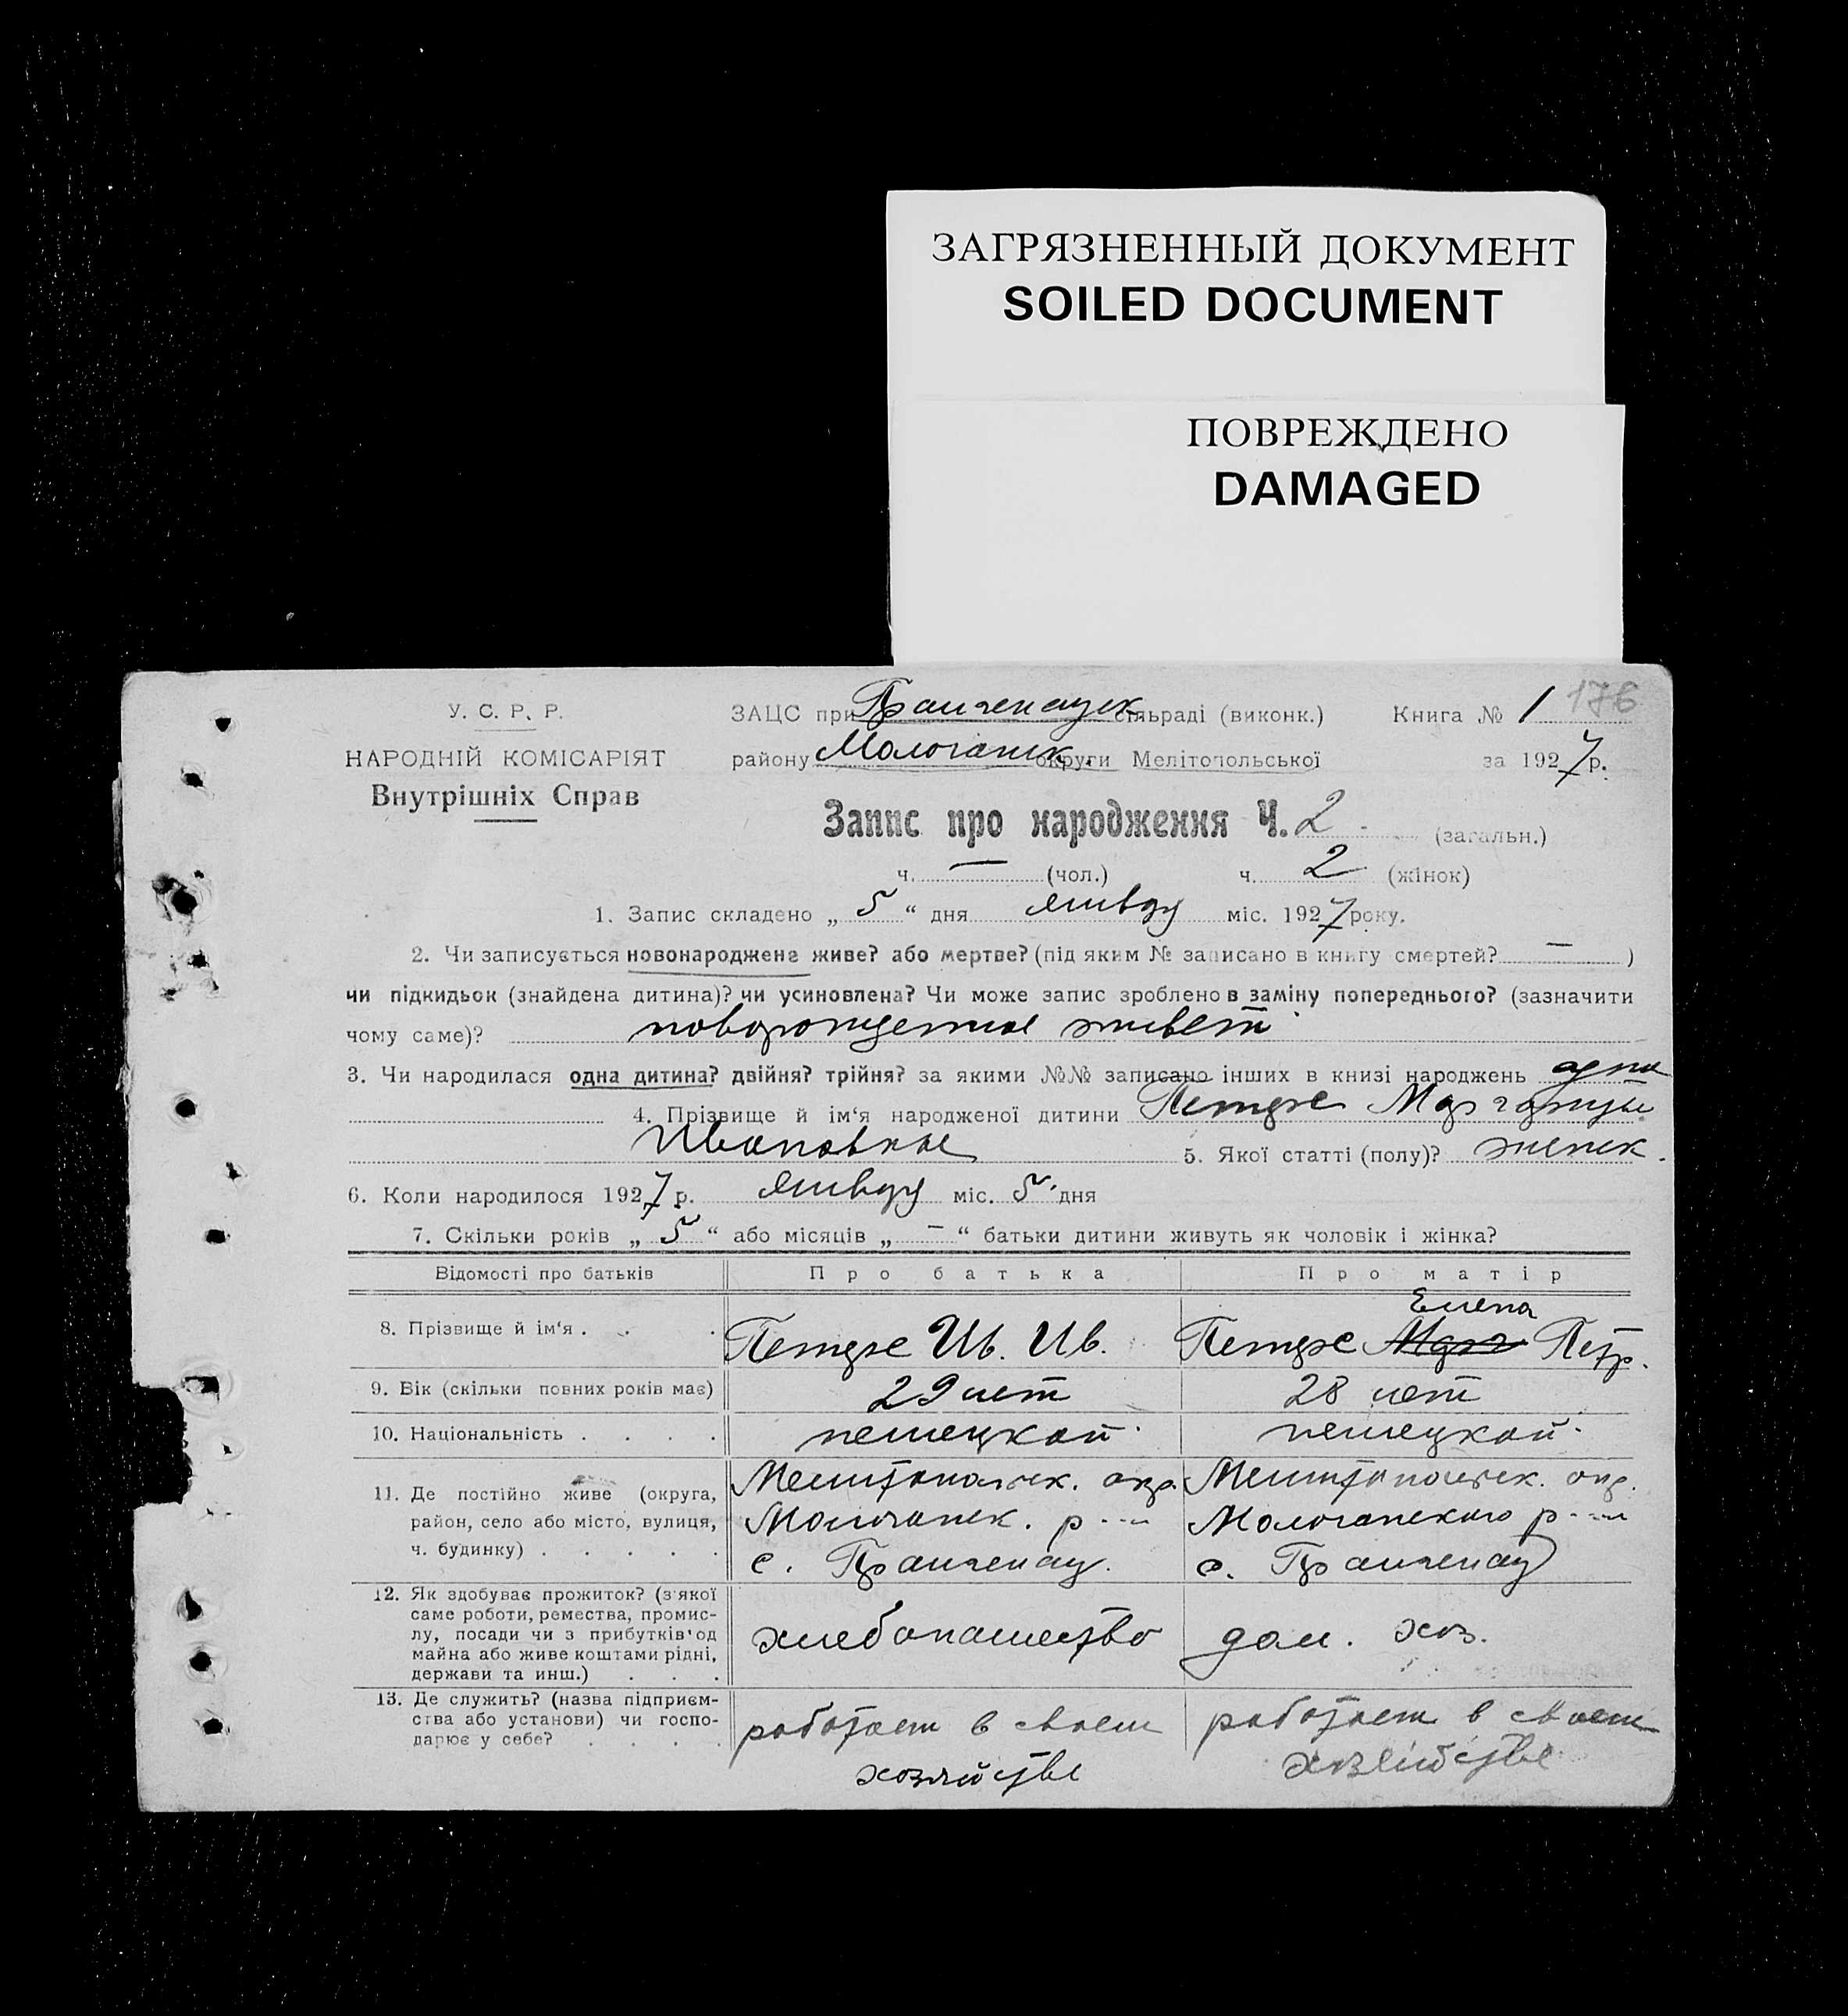 ЗАГРЯЗНЕННЫЙ ДОКУМЕНТ
SOILED DOCUMENT
ПОВРЕЖДЕНО
DAMAGED
176
У. С. Р. Р.
НАРОДНІЙ КОМІСАРІЯТ
Внутрішніх Справ
ЗАЦС при сільраді (виконк.) Книга № 1
району Молочанск. округи Мелітопольської за 1927 р.
Запис про народження Ч. 2 (загальн.)
ч. — (чол.) ч. 2 (жінок)
1. Запис складено „ 5 “ дня января міс. 1927 року.
2. Чи записується новонароджена живе? або мертве? (під яким № записано в книгу смертей? — )
чи підкидьок (знайдена дитина)? чи усиновлена? Чи може запис зроблено в заміну попереднього? (зазначити
чому саме)? новорожденная живет
3. Чи народилася одна дитина? двійня? трійня? за якими №№ записано інших в книзі народжень одна
4. Прізвище й ім‘я народженої дитини
Ивановна 5. Якої статті (полу)? женск.
6. Коли народилося 1927 р. января міс. 5 дня
7. Скільки років „ 5 “ або місяців „ — “ батьки дитини живуть як чоловік і жінка?
Відомості про батьків Про батька Про матір
Елена
8. Прізвище й ім‘я . . . Ив. Ив. Петр.
9. Вік (скільки повних років має) 29 лет 28 лет
10. Національність . . . . немецкой немецкой
11. Де постійно живе (округа, Мелитопольск. окр. Мелитопольск. окр.
район, село або місто, вулиця, Молочанск. р-- Молочанского р--
ч. будинку) . . . . . с. с.
12. Як здобуває прожиток? (з'якої
саме роботи, ремества, промис-
лу, посади чи з прибутків'од хлебопашество дом. хоз.
майна або живе коштами рідні,
держави та инш.) . . .
13. Де служить? (назва підприєм-
ства або установи) чи госпо- работает в своем работает в своем
дарює у себе? . . . .
хозяйстве хозяйстве